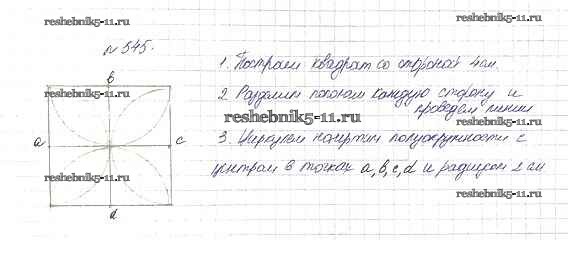 reshebnik5-11.ru
№ 545.
1. Построим квадрат со стороной 4 см.
b
2. Разделим пополам каждую сторону и
reshebnik5-11.ru
проведем линии
reshebnik5-11.ru
a
c
3. Циркулем начертим полуокружности с
центром в точках a, b, c, d и радиусом 2 см
reshebnik5-11.ru
reshebnik5-11.ru
d